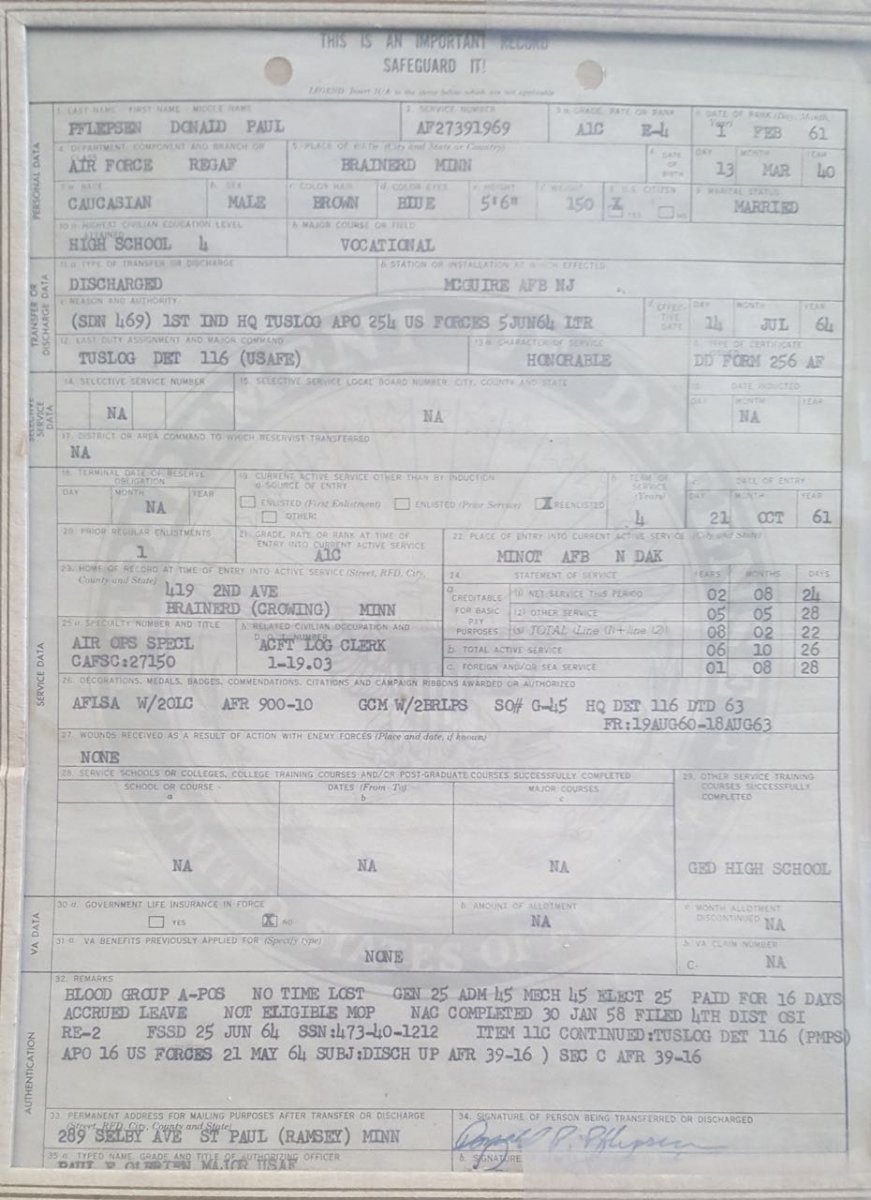 THIS IS AN IMPORTANT RECORD
SAFEGUARD IT!
PERSONAL DATA
1. LAST NAME - FIRST NAME - MIDDLE NAME 2. SERVICE NUMBER 3 a. GRADE, RATE OR RANK b. DATE OF RANK (Day, Month, Year)
PFLEPSEN DONALD PAUL AF27391969 A1C E-4 1 FEB 61
4. DEPARTMENT, COMPONENT AND BRANCH OR CLASS 5. PLACE OF BIRTH (City and State or Country) 6. DATE OF BIRTH DAY MONTH YEAR
AIR FORCE REGAF BRAINERD MINN 13 MAR 40
7 a. RACE b. SEX c. COLOR HAIR d. COLOR EYES e. HEIGHT f. WEIGHT 8. U.S. CITIZEN 9. MARITAL STATUS
CAUCASIAN MALE BROWN BLUE 5'6" 150 X YES NO MARRIED
10 a. HIGHEST CIVILIAN EDUCATION LEVEL ATTAINED b. MAJOR COURSE OR FIELD
HIGH SCHOOL 4 VOCATIONAL
TRANSFER OR DISCHARGE DATA
11 a. TYPE OF TRANSFER OR DISCHARGE b. STATION OR INSTALLATION AT WHICH EFFECTED
DISCHARGED MCGUIRE AFB NJ
c. REASON AND AUTHORITY d. EFFECTIVE DATE DAY MONTH YEAR
(SDN 469) 1ST IND HQ TUSLOG APO 254 US FORCES 5JUN64 LTR 14 JUL 64
12. LAST DUTY ASSIGNMENT AND MAJOR COMMAND 13 a. CHARACTER OF SERVICE b. TYPE OF CERTIFICATE
TUSLOG DET 116 (USAFE) HONORABLE DD FORM 256 AF
SELECTIVE SERVICE DATA
14. SELECTIVE SERVICE NUMBER 15. SELECTIVE SERVICE LOCAL BOARD NUMBER, CITY, COUNTY AND STATE 16. DATE INDUCTED
DAY MONTH YEAR
NA NA NA
17. DISTRICT OR AREA COMMAND TO WHICH RESERVIST TRANSFERRED
NA
SERVICE DATA
18. TERMINAL DATE OF RESERVE OBLIGATION 19. CURRENT ACTIVE SERVICE OTHER THAN BY INDUCTION b. TERM OF SERVICE (Years) c. DATE OF ENTRY
DAY MONTH YEAR a. SOURCE OF ENTRY DAY MONTH YEAR
NA ENLISTED (First Enlistment) ENLISTED (Prior Service) X REENLISTED
OTHER: 4 21 OCT 61
20. PRIOR REGULAR ENLISTMENTS 21. GRADE, RATE OR RANK AT TIME OF ENTRY INTO CURRENT ACTIVE SERVICE 22. PLACE OF ENTRY INTO CURRENT ACTIVE SERVICE (City and State)
1 A1C MINOT AFB N DAK
23. HOME OF RECORD AT TIME OF ENTRY INTO ACTIVE SERVICE (Street, RFD, City, County and State) 24. STATEMENT OF SERVICE YEARS MONTHS DAYS
419 2ND AVE
BRAINERD (CROWING) MINN
a. CREDITABLE FOR BASIC PAY PURPOSES (1) NET SERVICE THIS PERIOD 02 08 24
(2) OTHER SERVICE 05 05 28
(3) TOTAL (Line (1) + line (2)) 08 02 22
b. TOTAL ACTIVE SERVICE 06 10 26
c. FOREIGN AND/OR SEA SERVICE 01 08 28
25 a. SPECIALTY NUMBER AND TITLE b. RELATED CIVILIAN OCCUPATION AND D.O.T. NUMBER
AIR OPS SPECL ACFT LOG CLERK
CAFSC:27150 1-19.03
26. DECORATIONS, MEDALS, BADGES, COMMENDATIONS, CITATIONS AND CAMPAIGN RIBBONS AWARDED OR AUTHORIZED
AFLSA W/2OLC AFR 900-10 GCM W/2BRLPS SO# G-45 HQ DET 116 DTD 63
FR:19AUG60-18AUG63
27. WOUNDS RECEIVED AS A RESULT OF ACTION WITH ENEMY FORCES (Place and date, if known)
NONE
28. SERVICE SCHOOLS OR COLLEGES, COLLEGE TRAINING COURSES AND/OR POST-GRADUATE COURSES SUCCESSFULLY COMPLETED 29. OTHER SERVICE TRAINING COURSES SUCCESSFULLY COMPLETED
SCHOOL OR COURSE DATES (From - To) MAJOR COURSES
a b c
NA NA NA GED HIGH SCHOOL
VA DATA
30 a. GOVERNMENT LIFE INSURANCE IN FORCE b. AMOUNT OF ALLOTMENT c. MONTH ALLOTMENT DISCONTINUED
YES X NO NA NA
31 a. VA BENEFITS PREVIOUSLY APPLIED FOR (Specify type) b. VA CLAIM NUMBER
NONE C- NA
AUTHENTICATION
32. REMARKS
BLOOD GROUP A-POS NO TIME LOST GEN 25 ADM 45 MECH 45 ELECT 25 PAID FOR 16 DAYS
ACCRUED LEAVE NOT ELIGIBLE MOP NAC COMPLETED 30 JAN 58 FILED 4TH DIST OSI
RE-2 FSSD 25 JUN 64 SSN:473-40-1212 ITEM 11C CONTINUED:TUSLOG DET 116 (PMPS)
APO 16 US FORCES 21 MAY 64 SUBJ:DISCH UP AFR 39-16 ) SEC C AFR 39-16
33. PERMANENT ADDRESS FOR MAILING PURPOSES AFTER TRANSFER OR DISCHARGE (Street, RFD, City, County and State) 34. SIGNATURE OF PERSON BEING TRANSFERRED OR DISCHARGED
289 SELBY AVE ST PAUL (RAMSEY) MINN Donald P. Pflepsen
35 a. TYPED NAME, GRADE AND TITLE OF AUTHORIZING OFFICER b. SIGNATURE
MAJOR USAF